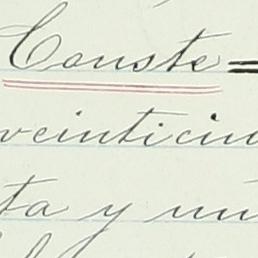 Conste=
veinticin
ta y nu